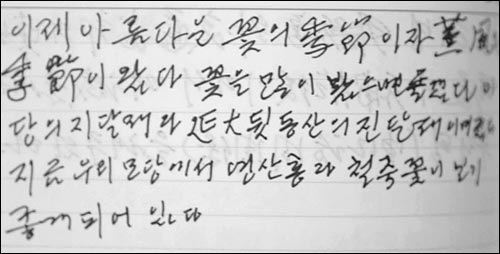 이제 아름다운 꽃의 季節이자 薰風
季節이 왔다 꽃을 많이 봤으면 좋겠다
당의 지달래와 延大 뒷동산의 진달래
지금 우리 모당에서 연산홍과 철죽꽃이 보기
좋게 피어 있다